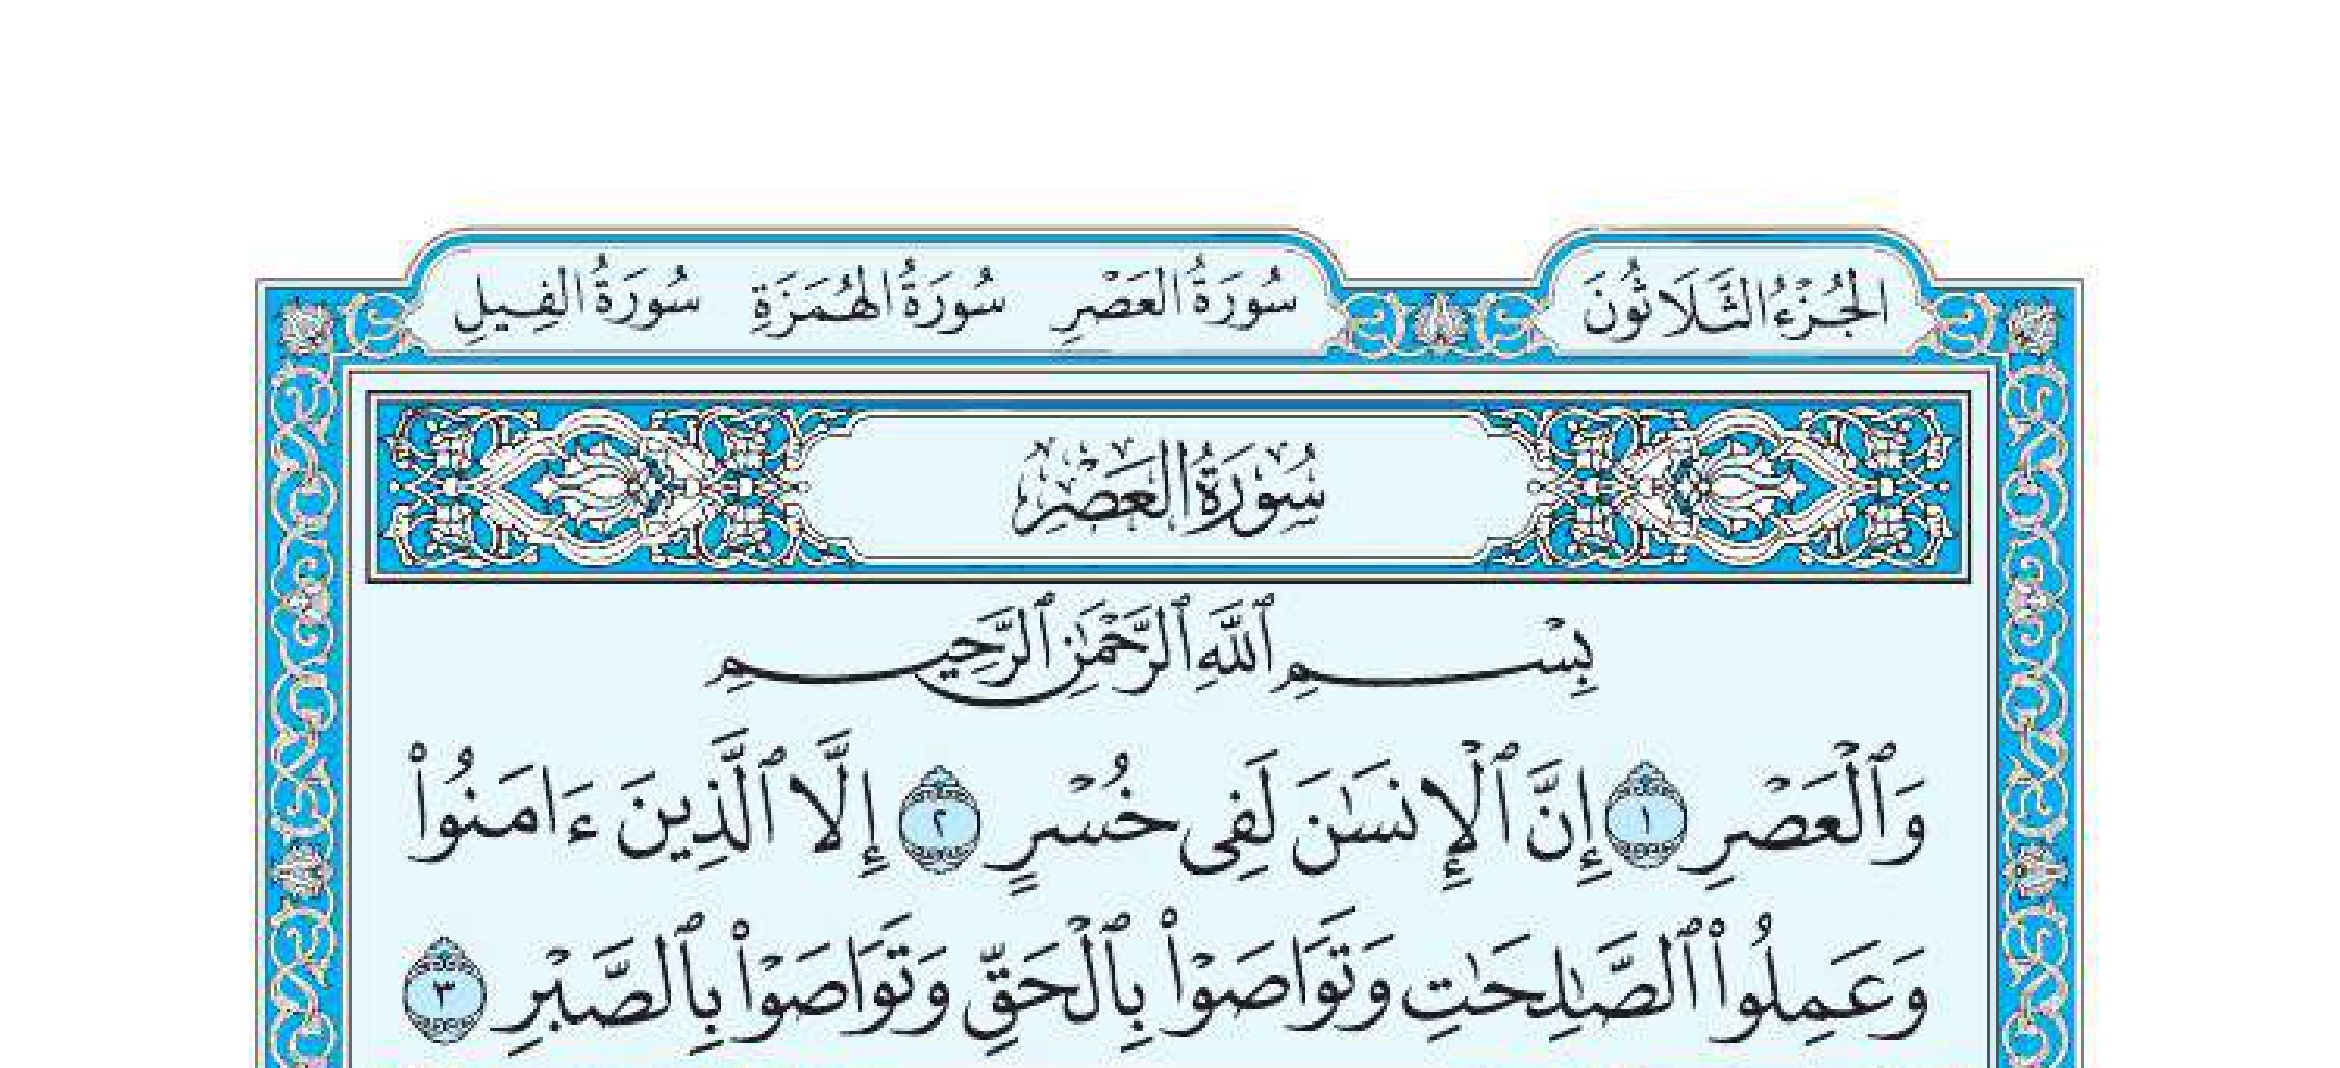 الجُزْءُ الثَّلَاثُونَ سُورَةُ العَصْرِ سُورَةُ الهُمَزَةِ سُورَةُ الفِيلِ
سُورَةُ العَصْرِ
بِسْمِ ٱللَّهِ ٱلرَّحْمَٰنِ ٱلرَّحِيمِ
وَٱلْعَصْرِ ١ إِنَّ ٱلْإِنسَٰنَ لَفِى خُسْرٍ ٢ إِلَّا ٱلَّذِينَ ءَامَنُوا۟
وَعَمِلُوا۟ ٱلصَّٰلِحَٰتِ وَتَوَاصَوْا۟ بِٱلْحَقِّ وَتَوَاصَوْا۟ بِٱلصَّبْرِ ٣